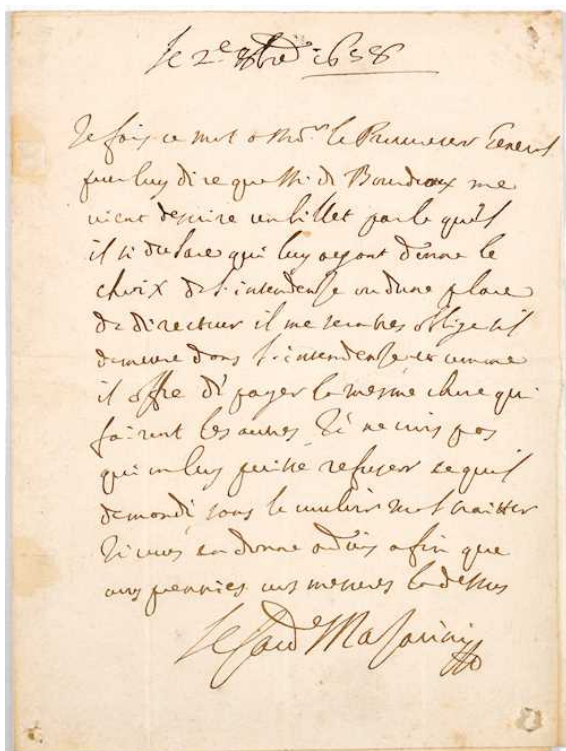 le 2e 8bre 1658
Je fais ce mot a Mr. le Procureur General
pour luy dire que Mr. de Bourdeaux me
vient descrire un billet par le quel
il declare qui luy ayant donné le
choix de l'intendense ou dune place
de directeur il me sera tres obligé sil
demeure dans l'intendense et comme
il offre de payer la mesme chose qui
fairont les autres Je ne crois pas
qui on luy puisse refuser ce quil
demande sans le vouloir mal traitter
Je vous en donne advis afin que
vous prennies vos mesures la dessus
le Card. Mazarini